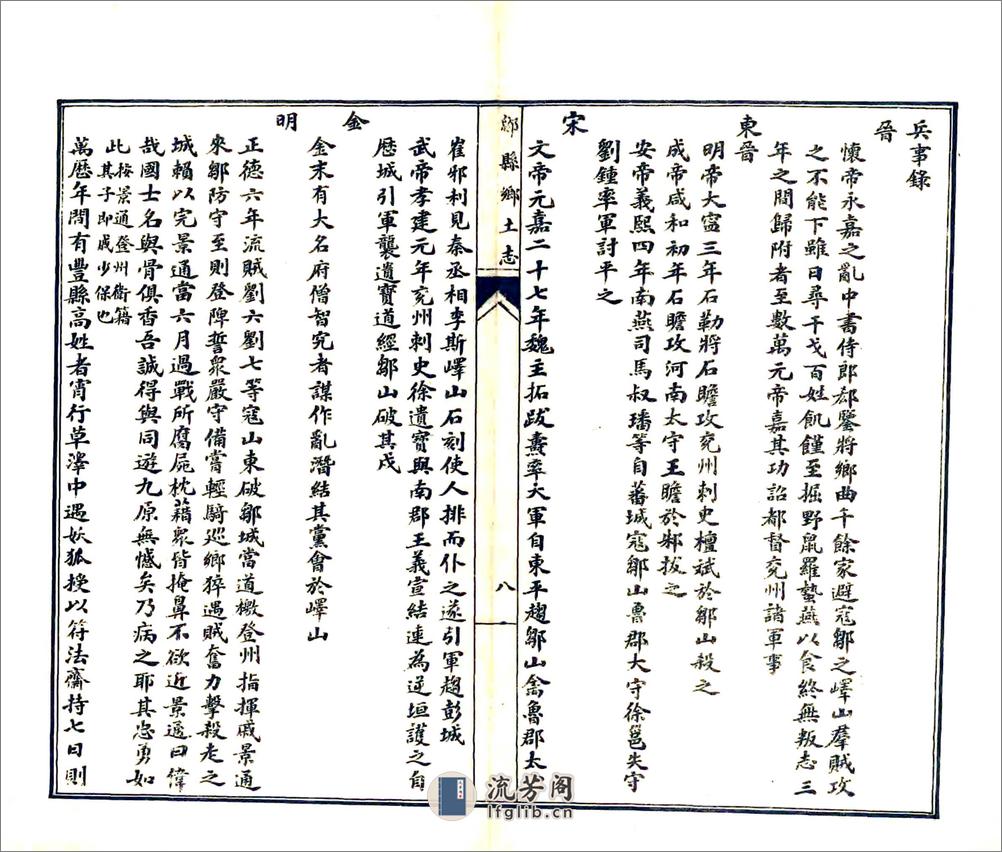 兵事錄
晉
懷帝永嘉之亂中書侍郎郄鑒將鄉曲千餘家避寇鄒之嶧山羣賊攻
之不能下雖日尋干戈百姓飢饉至掘野鼠羅蟄燕以食終無叛志三
年之間歸附者至數萬元帝嘉其功詔都督兗州諸軍事
東晉
明帝大寗三年石勒將石瞻攻兗州刺史檀斌於鄒山殺之
成帝咸和初年石瞻攻河南太守王瞻於邾拔之
安帝義熙四年南燕司馬叔璠等自蕃城寇鄒山魯郡大守徐邕失守
劉鍾率軍討平之
宋
文帝元嘉二十七年魏主拓跋燾率大軍自東平趨鄒山禽魯郡太
鄒縣鄉土志
八
崔邪利見秦丞相李斯嶧山石刻使人排而仆之遂引軍趨彭城
武帝孝建元年兗州刺史徐遺寶與南郡王義宣結連為逆垣護之自
歷城引軍襲遺寶道經鄒山破其戍
金
金末有大名府僧智究者謀作亂潛結其黨會於嶧山
明
正德六年流賊劉六劉七等寇山東破鄒城當道檄登州指揮戚景通
來鄒防守至則登陴誓眾嚴守備嘗輕騎巡鄉猝遇賊奮力擊殺走之
城賴以完景通當六月過戰所腐屍枕藉眾皆掩鼻不欲近景通曰偉
哉國士名與骨俱香吾誠得與同遊九原無憾矣乃病之耶其忠勇如
此按景通登州衛籍
其子即戚少保也
萬歷年間有豐縣高姓者宵行草澤中遇妖狐授以符法齋持七日則
流芳阁
lfglib.cn